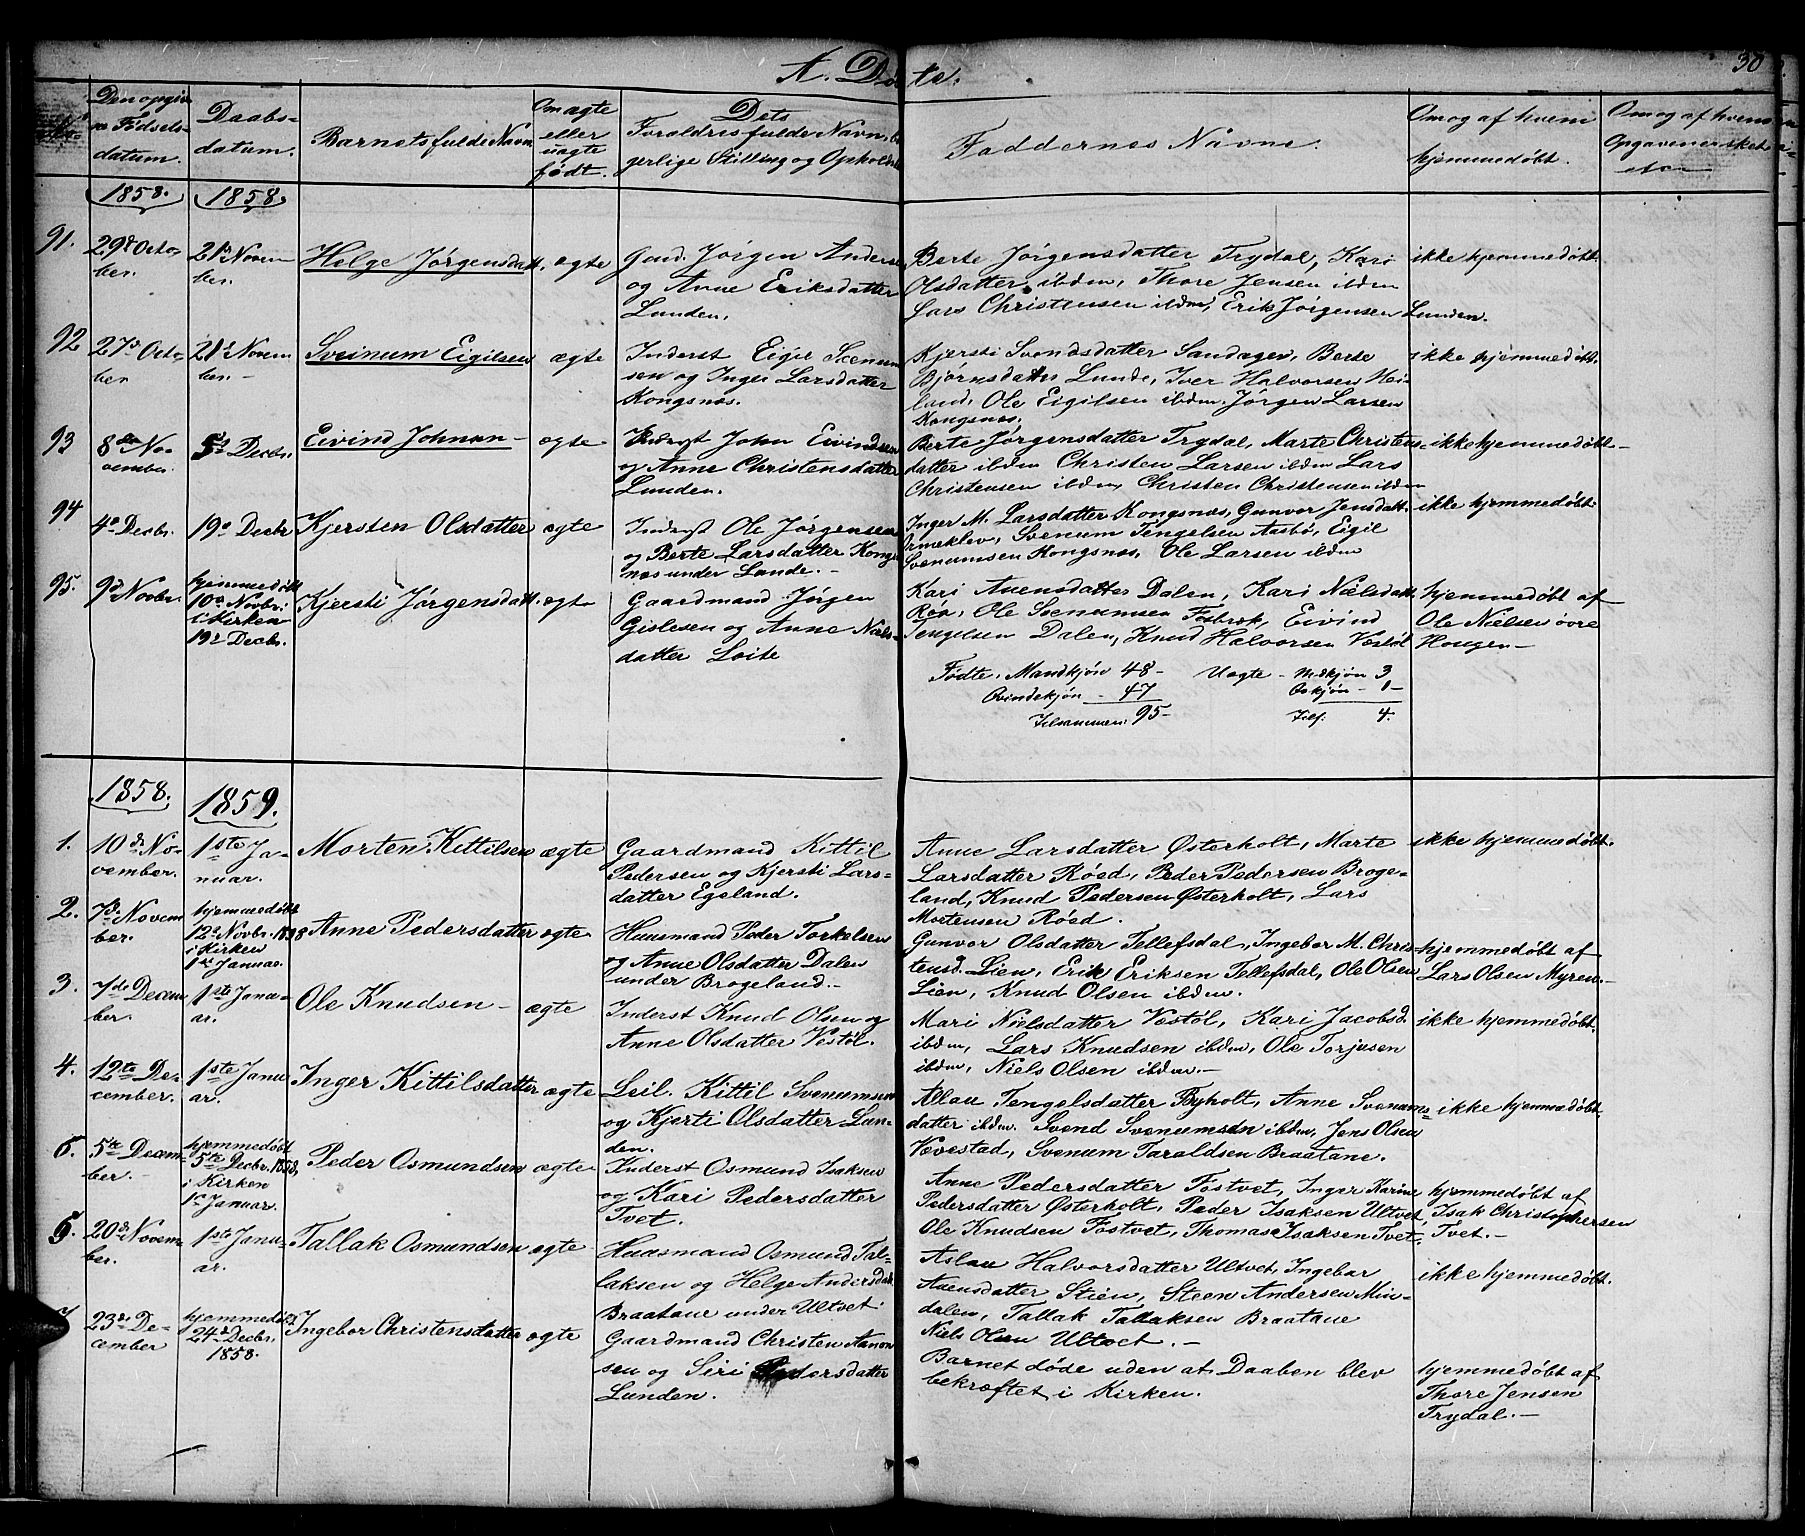 A. Døbte.
30
No
Den opgiv
ne Fødsels-
datum.
Daabs-
datum.
Barnets fulde Navn
Om ægte
eller
uægte
født.
Dets
Forældres fulde Navn, bo
gerlige Stilling og Opholds
Faddernes Navne.
Om og af hvem
hjemmedøbt.
Om og af hvem
Opgaven er sket
1858.
1858.
91.
29de Octo-
ber.
21d Novem
ber.
Helge Jørgensdatt.
ægte
Gmd. Jørgen Anderse
og Anne Eriksdatter
Lunden.
Berte Jørgensdatter Trydal, Kari
Olsdatter ibdm, Thore Jensen ibdm
Lars Christensen ibdm, Erik Jørgensen Lunden.
ikke hjemmedøbt.
92
27de Octo-
ber
21d Novem
ber. -
Svenum Eigilsen
ægte
Inderst Eigil Svenum
sen og Inger Larsdatter
Kongsnæs.
Kjersti Svendsdatter Sandager, Berte
Bjørnsdatter Lunde, Iver Halvorsen Hei-
land, Ole Eigilsen ibdm. Jørgen Larsen
Kongsnæs.
ikke hjemmedøbt.
93
8de No-
vember.
5d Decbr.
Eivind Johnsen -
ægte
Inderst John Eivindsen
og Anne Christensdatter
Lunden.
Berte Jørgensdatter Trydal, Marte Christens-
datter ibdm Christen Larsen ibdm Lars
Christensen ibdm, Christen Christensen ibdm
ikke hjemmedøbt -
94
4d Decbr.
19d Decbr
Kjersten Olsdatter
ægte
Inderst Ole Jørgensen
og Berte Larsdatter Kongs
næs under Lunde. -
Inger M. Larsdatter Kongsnæs, Gunvor Jensdatt.
Ormeklev, Svenum Tengelsen Aasbø, Eigil
Svenumsen Kongsnæs, Ole Larsen ibdm
ikke hjemmedøbt.
95.
9d Novbr.
hjemmedøbt
10d Novbr.
i Kirken
19d Decbr.
Kjersti Jørgensdatt.
ægte
Gaardmand Jørgen
Gislesen og Anne Niels-
datter Loite
Kari Auensdatter Dalen, Kari Nielsdatt.
Røe, Ole Svenumsen Fosbræk, Eivind
Tengelsen Dalen, Knud Halvorsen Vestøl
hjemmedøbt af
Ole Nielsen øvre
Hougen -
Fødte. Mandkjøn 48 - Uægte - Mdkjøn 3
Qvindekjøn - 47 Qvkjøn - 1 -
Tilsammen: 95 - Tils: 4.
1858.
1859.
1.
10de No-
vember.
1ste Ja-
nuar.
Morten Kittilsen
ægte
Gaardmand Kittil
Pedersen og Kjersti Lars-
datter Egeland.
Anne Larsdatter Østerholt, Marte
Larsdatter Røed, Peder Pedersen Broge-
land, Knud Pedersen Østerholt, Lars
Mortensen Røed.
ikke hjemmedøbt.
2.
7de Novem
ber.
hjemmedøbt
12d Novbr. 1858
i Kirken
1ste Januar.
Anne Pedersdatter
ægte
Huusmand Peder Torkelsen
og Anne Olsdatter Dalen
under Brogeland. -
Gunvor Olsdatter Tellefsdal, Ingebor M. Chris-
tensd. Lien, Erik Eriksen Tellefsdal, Ole Olsen
Lien, Knud Olsen ibdm.
hjemmedøbt af
Lars Olsen Myren. -
3.
7de Decem
ber.
1ste Janu-
ar.
Ole Knudsen -
ægte
Inderst Knud Olsen og
Anne Olsdatter Vestøl.
Mari Nielsdatter Vestøl, Kari Jacobsd.
ibdm, Lars Knudsen ibdm, Ole Torjusen
ibdm, Niels Olsen ibdm. -
ikke hjemmedøbt.
4.
12te De-
cember.
1ste Janu
ar.
Inger Kittilsdatter
ægte
Leil. Kittil Svenumsen
og Kjerti Olsdatter Lun-
den.
Aslau Tengelsdatter Byholt, Anne Svenums-
datter ibdm. Svend Svenumsen ibdm, Jens Olsen
Vævestad, Svenum Taraldsen Braatane.
ikke hjemmedøbt.
5.
5te Decem-
ber. -
hjemmedøbt
5te Decbr. 1858,
i Kirken
1ste Januar.
Peder Osmundsen
ægte
Inderst Osmund Isaksen
og Kari Pedersdatter
Tvet.
Anne Pedersdatter Fostvet, Inger Karine
Pedersdatter Østerholt, Peder Isaksen Ultvet,
Ole Knudsen Fostvet, Thomas Isaksen Tvet.
hjemmedøbt af
Isak Christophersen
Tvet. -
6.
20de Novem-
ber.
1ste Janu-
ar.
Tallak Osmundsen
ægte
Huusmand Osmund Tal-
laksen og Helge Andersdatt.
Braatane under Ultvet
Aslau Halvorsdatter Ultvet, Ingebor
Auensdatter Stien, Steen Andersen Min-
dalen, Tallak Tallaksen Braatane
Niels Olsen Ultvet. -
ikke hjemmedøbt.
7
23de De-
cember
hjemmedøbt
24de Decbr.
1858.
Ingebor Christensdatter
ægte
Gaardmand Christen Aanon
sen og Siri Pedersdatter
Lunden.
Barnet døde uden at Daaben blev
bekræftet i Kirken.
hjemmedøbt af
Thore Jensen
Trydal. -